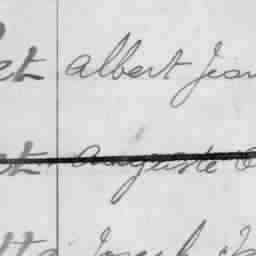 et Albert Jean
et Auguste
tte Joseph